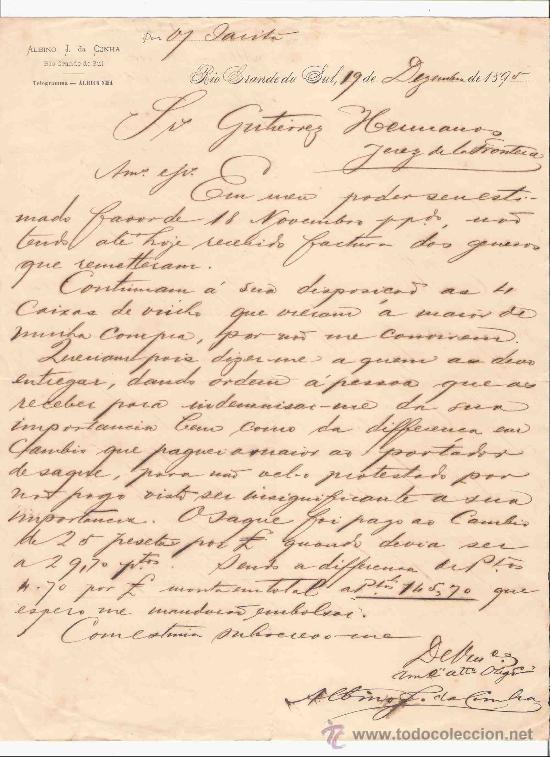 ALBINO J. da CUNHA
Rio Grande do Sul
Telegramma — ALBICUNHA
Por
Rio Grande do Sul, 19 de Dezembro de 1895
Snr Gutierrez Hermanos
Jerez de la Frontera
Amos e Snr.
Em meu poder seu esti-
mado favor de 18 Novembro ppdo, não
tendo até hoje recebido factura dos generos
que remetteram.
Continuam á sua disposição as 4
Caixas de vinho que vieram á maior de
minha compra, por não me convirem.
Queiram pois dizer-me a quem as devo
entregar, dando ordem á pessoa que as
receber para indemnisar-me da sua
importancia bem como da differença em
Cambio que paguei a maior ao portador
de saque, para não vel-o protestado por
não pago visto ser insignificante a sua
importancia. O saque foi pago ao Cambio
de 25 pesetas por £ quando devia ser
a 29,70 ptas. Sendo a differença de Ptas
4.70 por £ monta em total a Ptas 145,70 que
espero me mandarão embolsar.
Com estima subscrevo-me
De Vmces
Albino J. da Cunha
www.todocoleccion.net